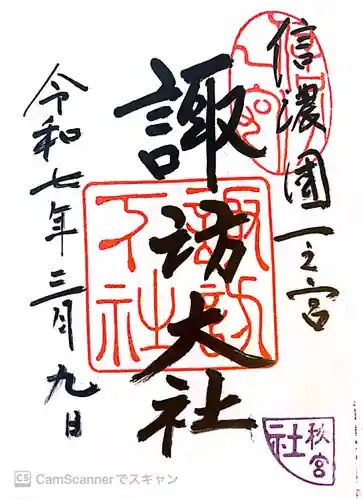 信濃國一之宮
諏訪大社
令和七年三月九日
諏訪
下社
秋宮
社
CS CamScannerでスキャン